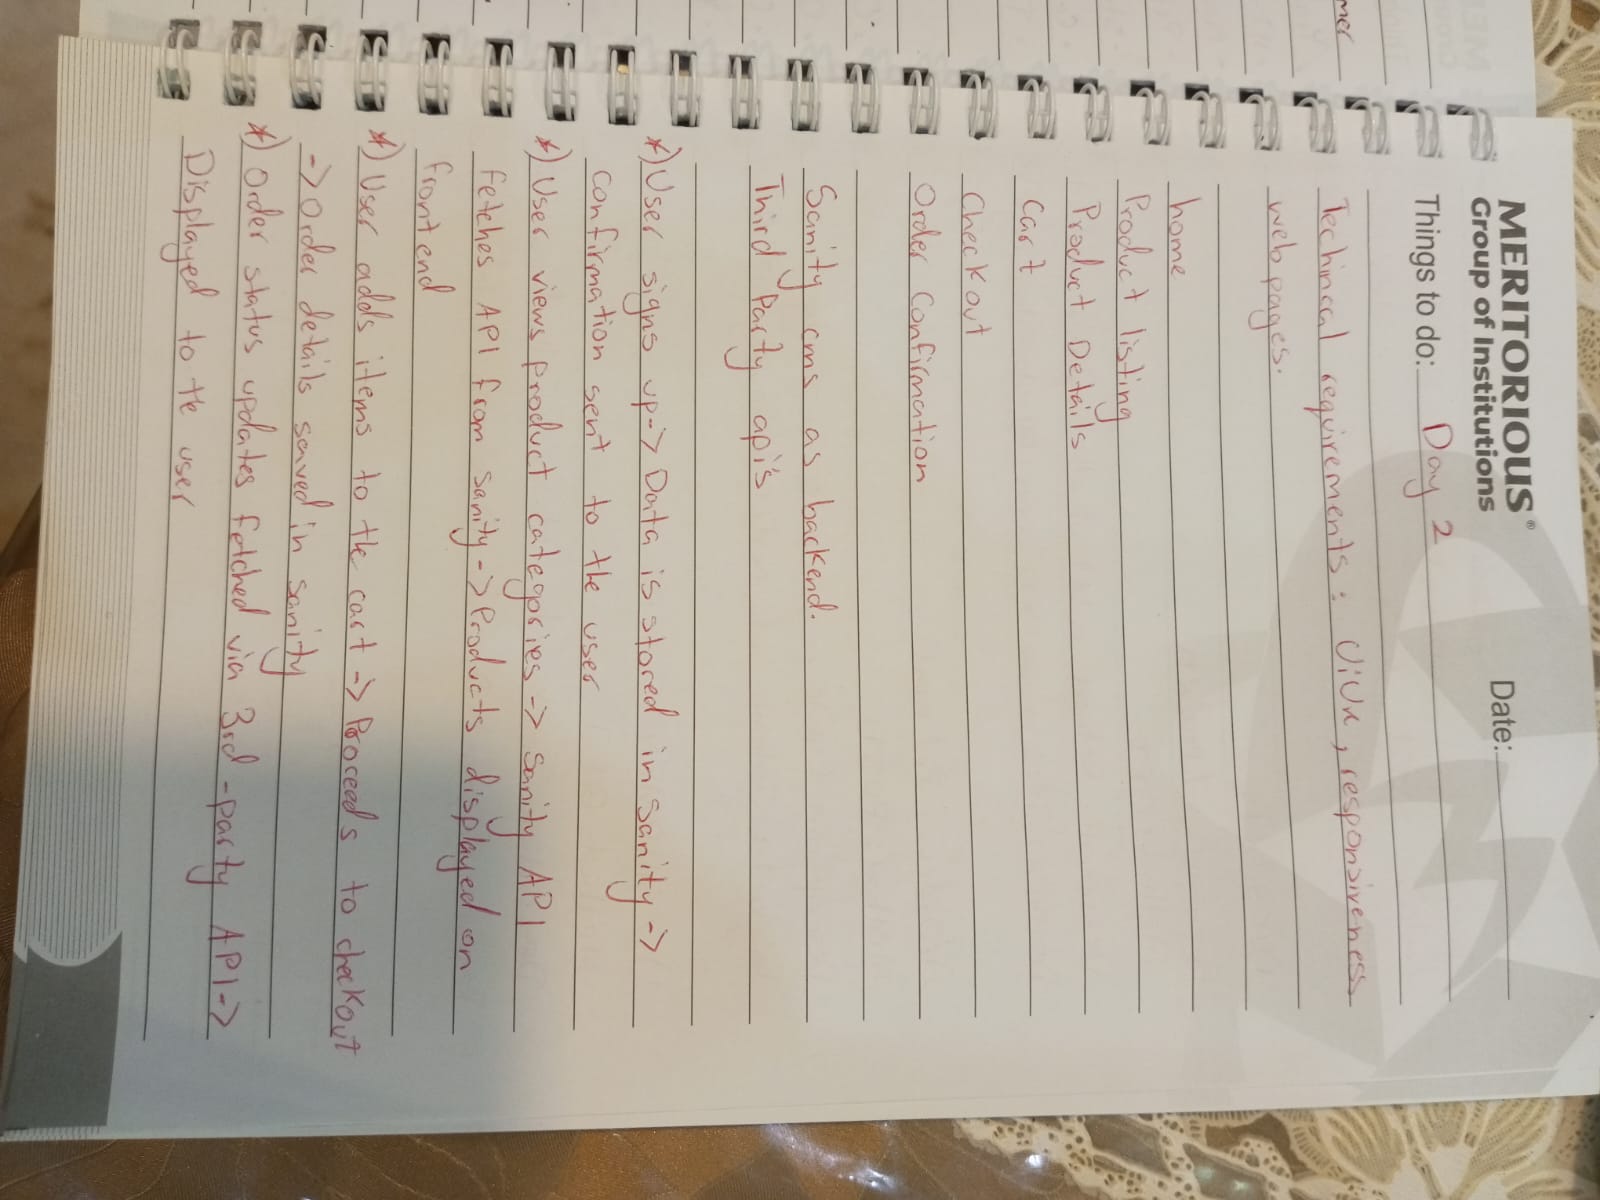 MERITORIOUS®
Group of Institutions
Date:
Things to do: Day 2
Techincal requirements: UiUx, responsiveness
web pages.
home
Product listing
Product Details
Cart
Checkout
Order Confirmation
Sanity cms as backend.
Third Party api's
*) User signs up -> Data is stored in sanity ->
confirmation sent to the user
*) User views product categories -> Sanity API
fetches API from sanity -> Products displayed on
frontend
*) User adds items to the cart -> Proceeds to checkout
-> Order details saved in sanity
*) Order status updates fetched via 3rd-party API ->
Displayed to the user
mer